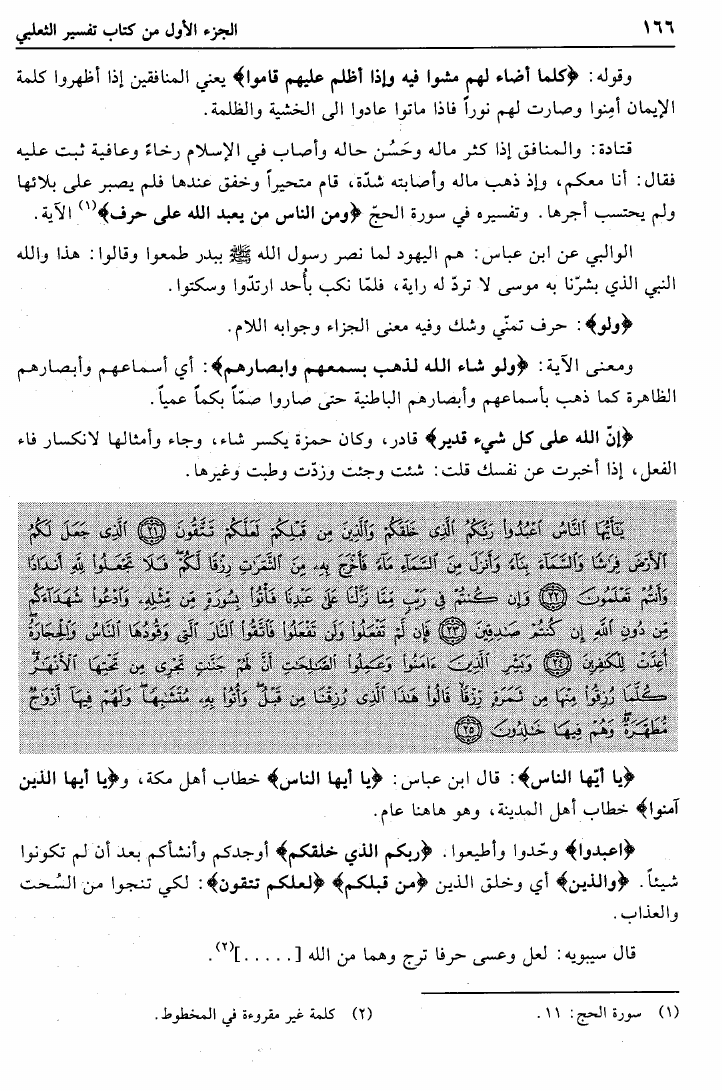 ١٦٦ الجزء الأول من كتاب تفسير الثعلبي
وقوله: ﴿كلما أضاء لهم مشوا فيه وإذا أظلم عليهم قاموا﴾ يعني المنافقين إذا أظهروا كلمة
الإيمان أمِنوا وصارت لهم نوراً فاذا ماتوا عادوا الى الخشية والظلمة.
قتادة: والمنافق إذا كثر ماله وحَسُن حاله وأصاب في الإسلام رخاءً وعافية ثبت عليه
فقال: أنا معكم، وإذ ذهب ماله وأصابته شدّة، قام متحيراً وخفق عندها فلم يصبر على بلائها
ولم يحتسب أجرها. وتفسيره في سورة الحجّ ﴿ومن الناس من يعبد الله على حرف﴾(١) الآية.
الوالبي عن ابن عباس: هم اليهود لما نصر رسول الله ﷺ ببدر طمعوا وقالوا: هذا والله
النبي الذي بشرّنا به موسى لا تردّ له راية، فلمّا نكب بأُحد ارتدّوا وسكتوا.
﴿ولو﴾: حرف تمنّي وشك وفيه معنى الجزاء وجوابه اللام.
ومعنى الآية: ﴿ولو شاء الله لذهب بسمعهم وابصارهم﴾: أي أسماعهم وأبصارهم
الظاهرة كما ذهب بأسماعهم وأبصارهم الباطنية حتى صاروا صمّاً بكماً عمياً.
﴿إنّ الله على كل شيء قدير﴾ قادر، وكان حمزة يكسر شاء، وجاء وأمثالها لانكسار فاء
الفعل، إذا أخبرت عن نفسك قلت: شئت وجئت وزدّت وطبت وغيرها.
يَٰٓأَيُّهَا ٱلنَّاسُ ٱعْبُدُوا۟ رَبَّكُمُ ٱلَّذِى خَلَقَكُمْ وَٱلَّذِينَ مِن قَبْلِكُمْ لَعَلَّكُمْ تَتَّقُونَ ﴿٢١﴾ ٱلَّذِى جَعَلَ لَكُمُ
ٱلْأَرْضَ فِرَٰشًا وَٱلسَّمَآءَ بِنَآءً وَأَنزَلَ مِنَ ٱلسَّمَآءِ مَآءً فَأَخْرَجَ بِهِۦ مِنَ ٱلثَّمَرَٰتِ رِزْقًا لَّكُمْ ۖ فَلَا تَجْعَلُوا۟ لِلَّهِ أَندَادًا
وَأَنتُمْ تَعْلَمُونَ ﴿٢٢﴾ وَإِن كُنتُمْ فِى رَيْبٍ مِّمَّا نَزَّلْنَا عَلَىٰ عَبْدِنَا فَأْتُوا۟ بِسُورَةٍ مِّن مِّثْلِهِۦ وَٱدْعُوا۟ شُهَدَآءَكُم
مِّن دُونِ ٱللَّهِ إِن كُنتُمْ صَٰدِقِينَ ﴿٢٣﴾ فَإِن لَّمْ تَفْعَلُوا۟ وَلَن تَفْعَلُوا۟ فَٱتَّقُوا۟ ٱلنَّارَ ٱلَّتِى وَقُودُهَا ٱلنَّاسُ وَٱلْحِجَارَةُ ۖ
أُعِدَّتْ لِلْكَٰفِرِينَ ﴿٢٤﴾ وَبَشِّرِ ٱلَّذِينَ ءَامَنُوا۟ وَعَمِلُوا۟ ٱلصَّٰلِحَٰتِ أَنَّ لَهُمْ جَنَّٰتٍ تَجْرِى مِن تَحْتِهَا ٱلْأَنْهَٰرُ ۖ
كُلَّمَا رُزِقُوا۟ مِنْهَا مِن ثَمَرَةٍ رِّزْقًا ۙ قَالُوا۟ هَٰذَا ٱلَّذِى رُزِقْنَا مِن قَبْلُ ۖ وَأُتُوا۟ بِهِۦ مُتَشَٰبِهًا ۖ وَلَهُمْ فِيهَآ أَزْوَٰجٌ
مُّطَهَّرَةٌ ۖ وَهُمْ فِيهَا خَٰلِدُونَ ﴿٢٥﴾
﴿يا أيّها الناس﴾: قال ابن عباس: ﴿يا أيها الناس﴾ خطاب أهل مكة، و﴿يا أيها الذين
آمنوا﴾ خطاب أهل المدينة، وهو هاهنا عام.
﴿اعبدوا﴾ وحّدوا وأطيعوا. ﴿ربكم الذي خلقكم﴾ أوجدكم وأنشأكم بعد أن لم تكونوا
شيئاً. ﴿والذين﴾ أي وخلق الذين ﴿من قبلكم﴾ ﴿لعلكم تتقون﴾: لكي تنجوا من السُحت
والعذاب.
قال سيبويه: لعل وعسى حرفا ترج وهما من الله [.....](٢).
(١) سورة الحج: ١١. (٢) كلمة غير مقروءة في المخطوط.